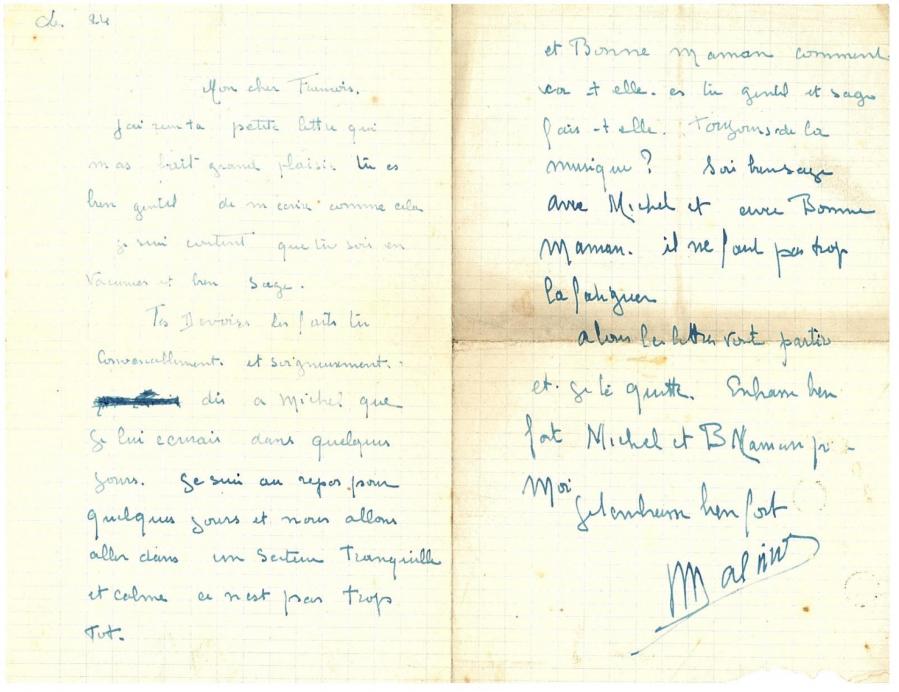 24
Mon cher Francois.
J'ai recu ta petite lettre qui
m as fait grand plaisir tu es
bien gentil de m ecrire comme cela
Je suis content que tu sois en
vacances et bien sage.
Tes Devoirs les faits tu
Convenablement et soigneusement.
dis a Michel que
Je lui ecrirais dans quelques
Jours. Je suis au repos pour
quelques Jours et nous allons
aller dans un secteur Tranquille
et calme ce n'est pas trop
Tot.
et Bonne maman comment
va t elle. es tu gentil et sage
fais-t elle. toujours de la
musique? Sois bien sage
avec Michel et avec Bonne
Maman. il ne faut pas trop
la fatiguer
alons les lettres vont partir
et Je te quitte. Embrasse bien
fort Michel et B Maman pr
Moi
Je t embrasse bien fort